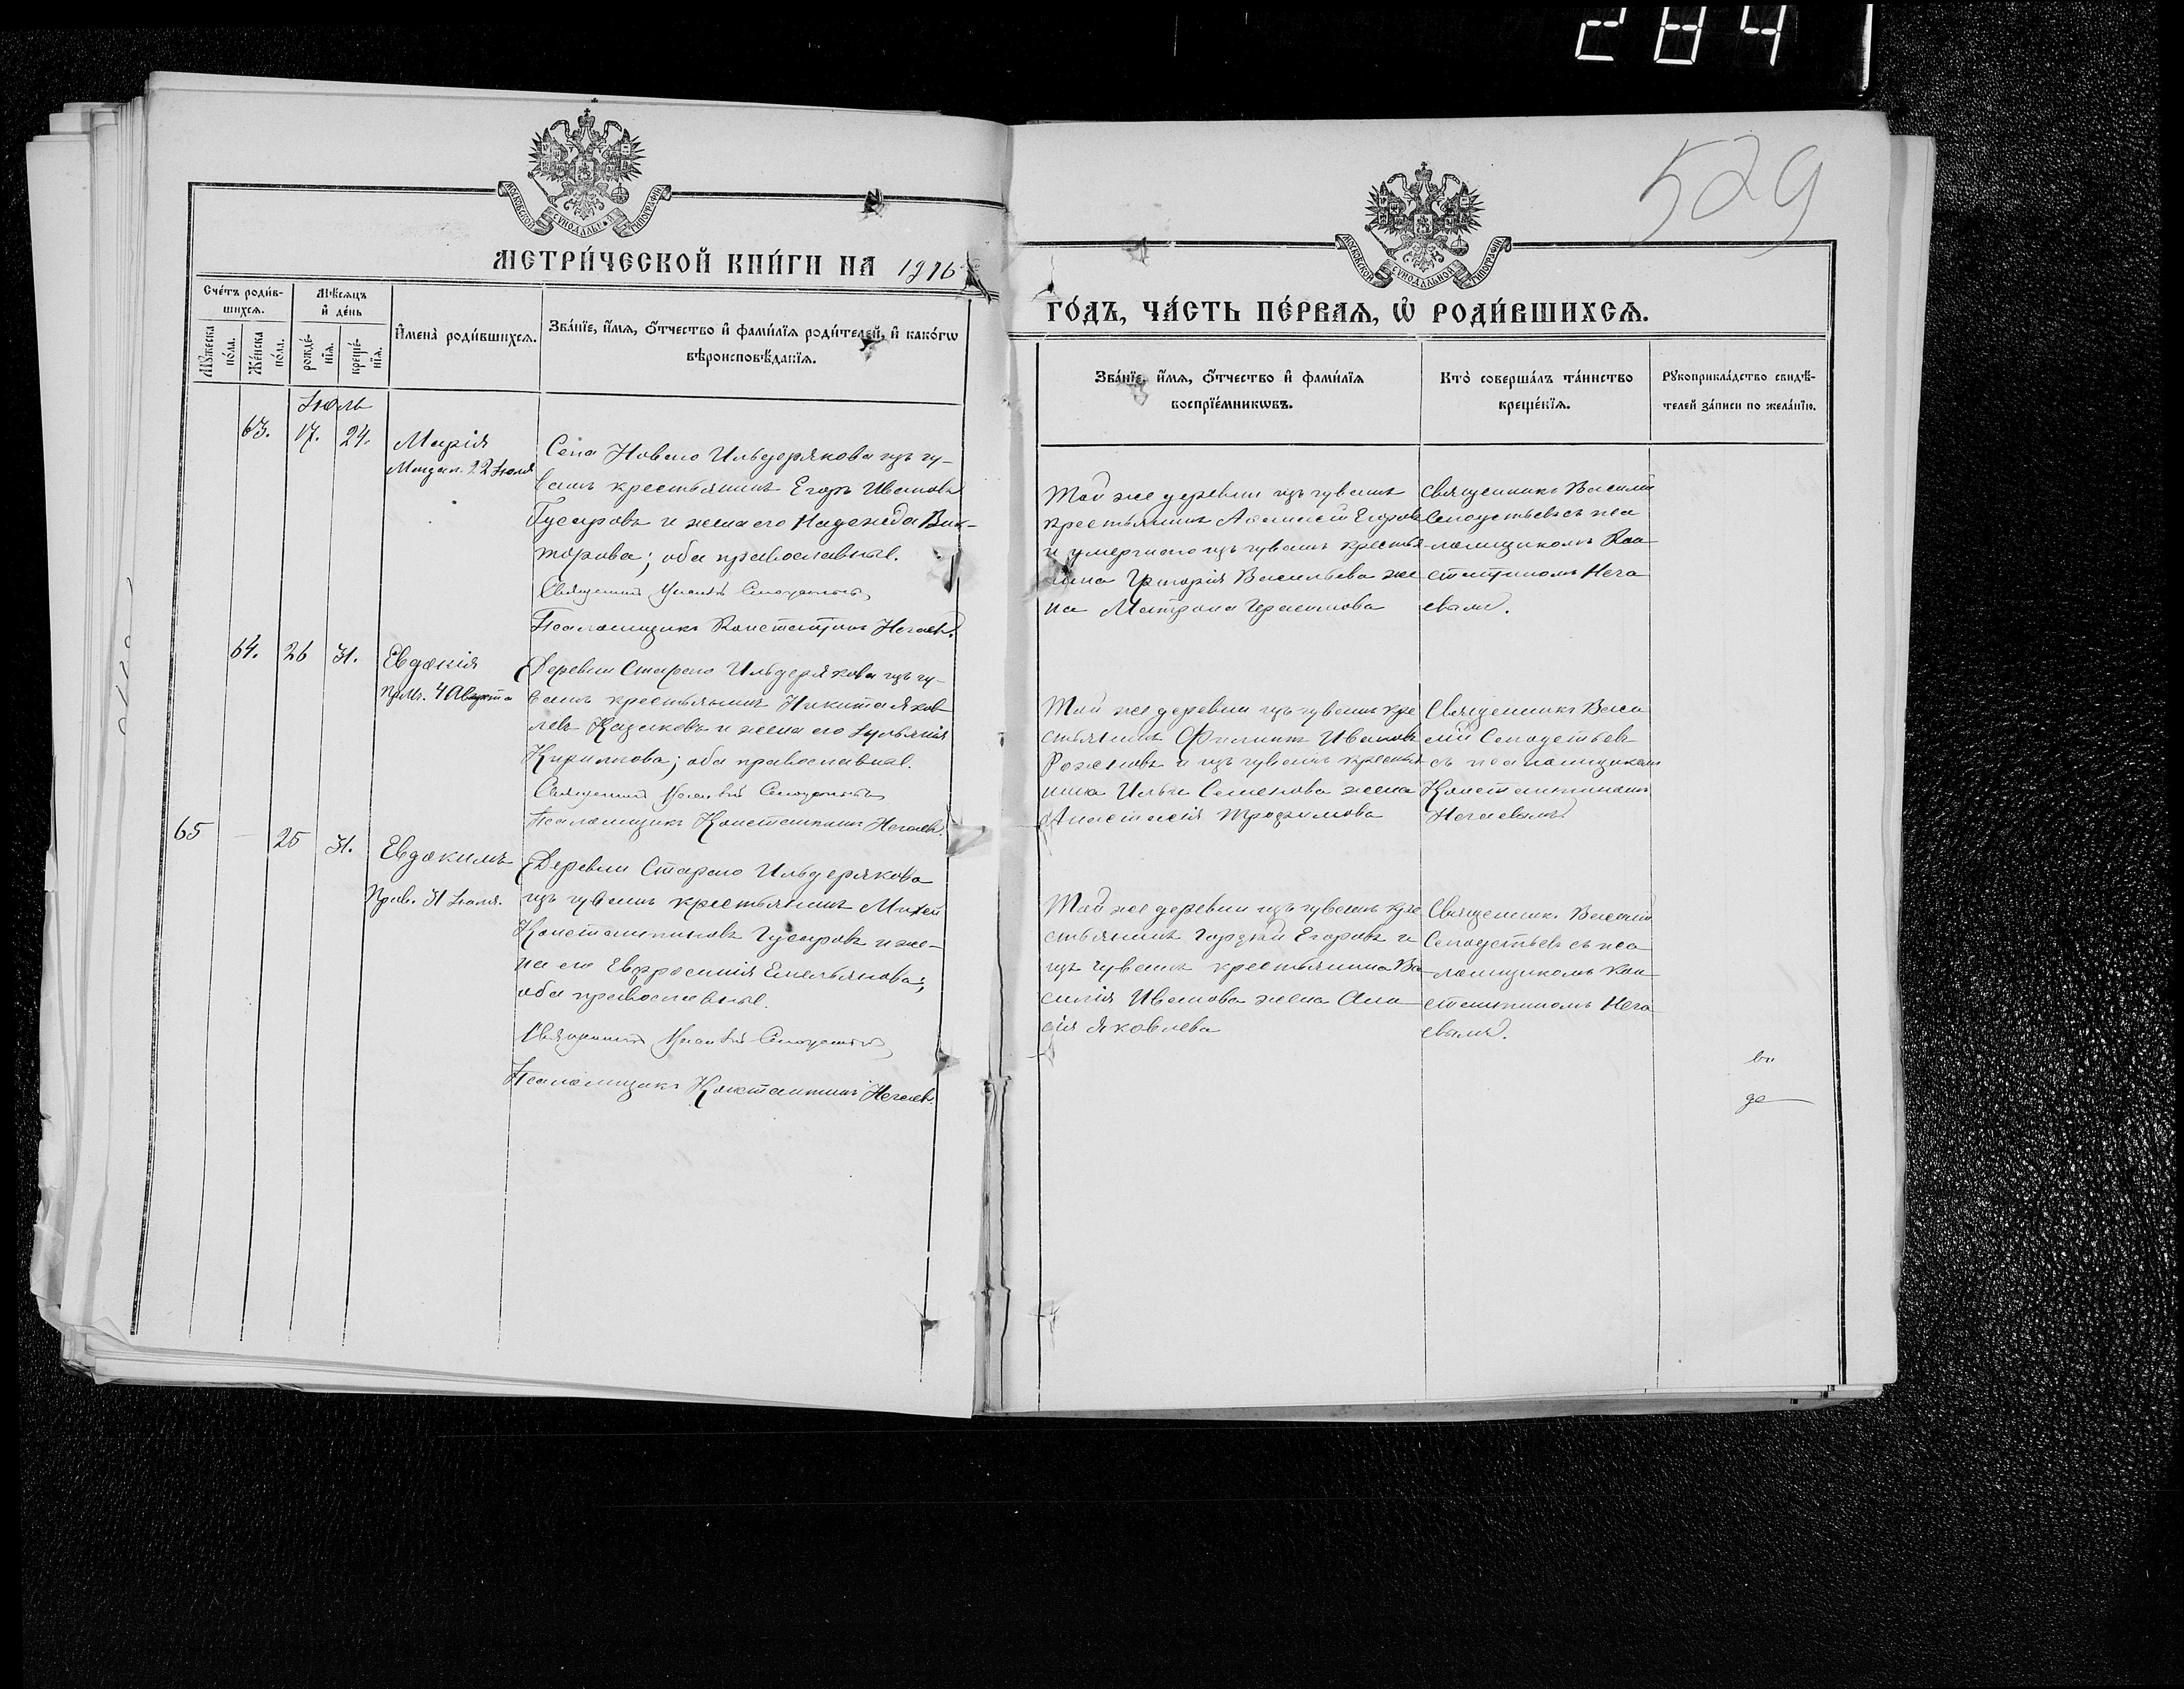 284
529
МЕТРИ́ЧЕСКОЙ КНИ́ГИ НА 1916
ГО́ДЪ, ЧА́СТЬ ПЕ́РВАЯ, Ѡ҆ РОДИ́ВШИХСЯ.
Сче́тъ роди́в-
шихся.
Мѣ́сяцъ
и҆ де́нь
Мꙋ́жеска
по́ла.
Же́нска
по́ла.
рожде́-
нїя.
креще́-
нїя.
И҆мена̀ роди́вшихся.
Зва́нїе, и҆́мя, ѻ҆́тчество и҆ фами́лїя роди́телей, и҆ како́гѡ
вѣроисповѣ́данїя.
Зва́нїе, и҆́мя, ѻ҆́тчество и҆ фами́лїя
воспрїе́мникѡвъ.
Кто̀ соверша́лъ та́инство
креще́нїя.
Рꙋкоприкла́дство свидѣ́-
телей за́писи по жела́нїю.
Іюль
63.
17.
24.
Марія
Магдал. 22 Іюля
Села Новаго Ильдерякова изъ чу-
вашъ крестьянинъ Егоръ Ивановъ
Гусаровъ и жена его Надежда Вик-
торова; оба православные.
Священникъ
Псаломщикъ Константинъ Нечаевъ.
Той же деревни изъ чувашъ
крестьянинъ Егоровъ
и умершаго изъ чувашъ крестья-
нина Григорія Васильева же
на Матрона Герасимова
Священникъ Василій
съ пса
ломщикомъ Кон
стантиномъ Неча
евымъ.
64.
26
31.
Евдокія
Прмч. 4 Августа
Деревни Стараго Ильдерякова изъ чу-
вашъ крестьянинъ Никита Яков
левъ Казаковъ и жена его Іуліанія
Кирилова; оба православные.
Священникъ
Псаломщикъ Константинъ Нечаевъ.
Той же деревни изъ чувашъ кре
стьянинъ Филиппъ Ивановъ
и изъ чувашъ крестья
нина Ильи Семенова жена
Анастасія Трофимова
Священникъ Васи
лій
съ псаломщикомъ
Константиномъ
Нечаевымъ
65
-
25
31.
Евдокимъ
Прав. 31 Іюля.
Деревни Стараго Ильдерякова
изъ чувашъ крестьянинъ Михей
Константиновъ Гусаровъ и же-
на его Евфросинія Емельянова;
оба православные.
Священникъ
Псаломщикъ Константинъ Нечаевъ.
Той же деревни изъ чувашъ кре
стьянинъ Гордѣй Егоровъ и
изъ чувашъ крестьянина Ва-
силія Иванова жена
Яковлева
Священникъ Василій
съ пса
ломщикомъ Кон
стантиномъ Неча
евымъ.